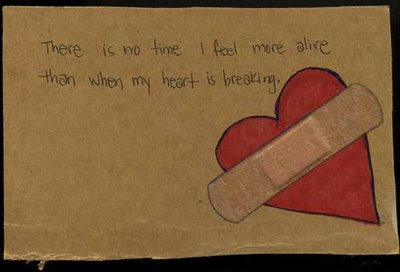 There is no time I feel more alive
than when my heart is breaking.